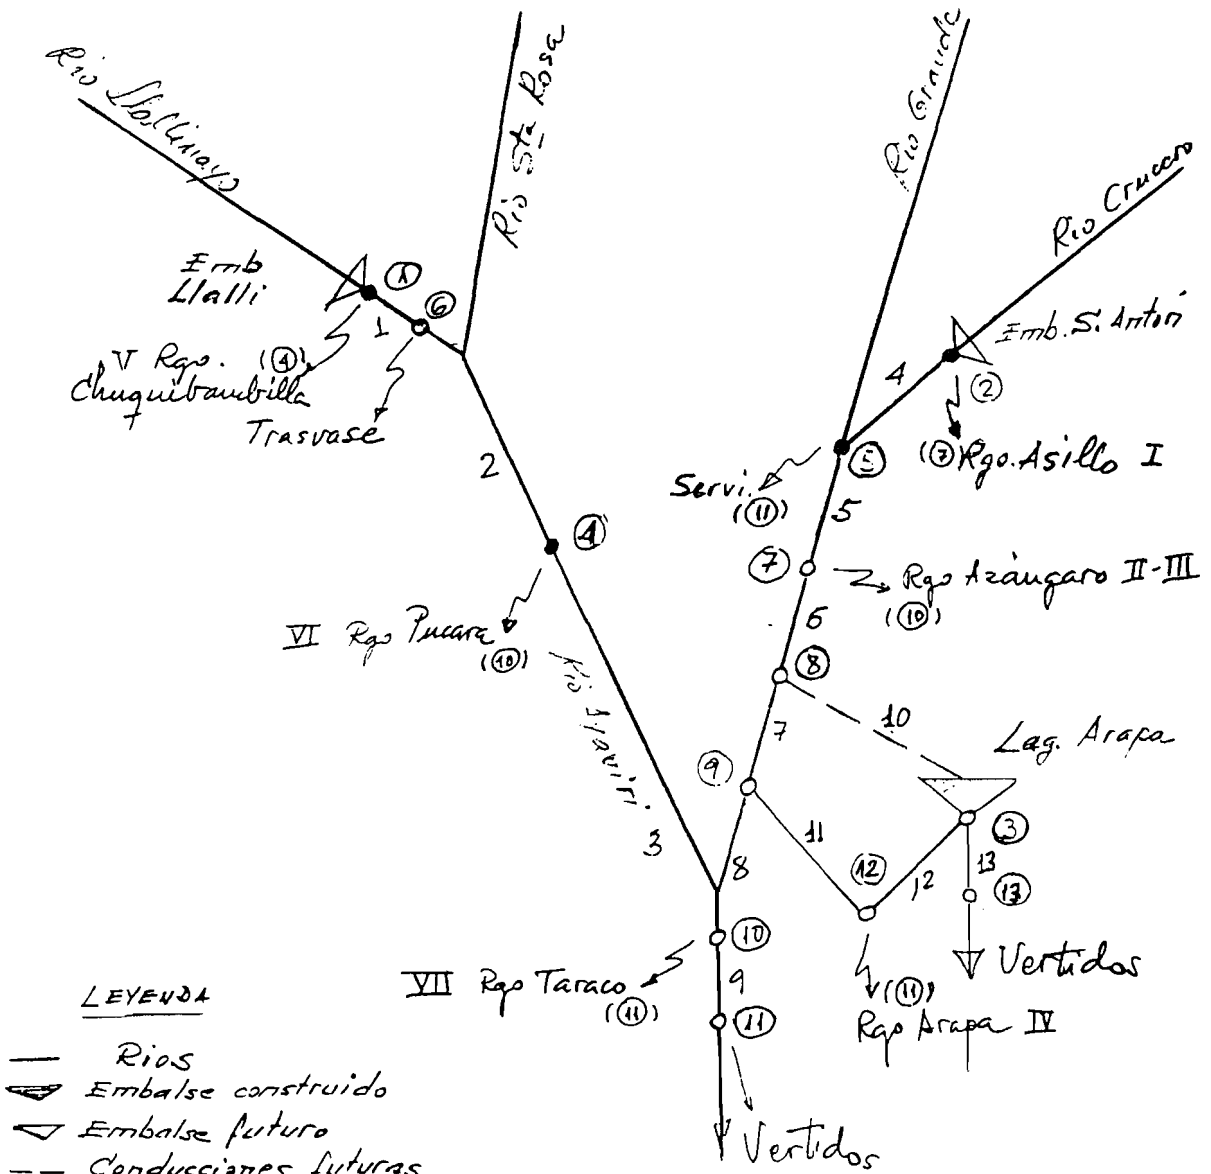 Rio Llallimayo
Rio Sta Rosa
Rio Grande
Rio Crucero
Emb
Llalli
1
6
1
V Rgo. (4)
Chuquibambilla
Trasvase
2
4
VI Rgo Pucara
(10)
Rio Ayaviri
3
Emb. S. Antón
4
2
(7) Rgo. Asillo I
5
Servi.
(11)
5
7
Rgo Azángaro II-III
(10)
6
8
10
7
Lag. Arapa
9
11
3
12
12
13
13
8
10
VII Rgo Taraco
(11)
9
11
Vertidos
(11)
Rgo Arapa IV
Vertidos
LEYENDA
Rios
Embalse construido
Embalse futuro
Conducciones futuras